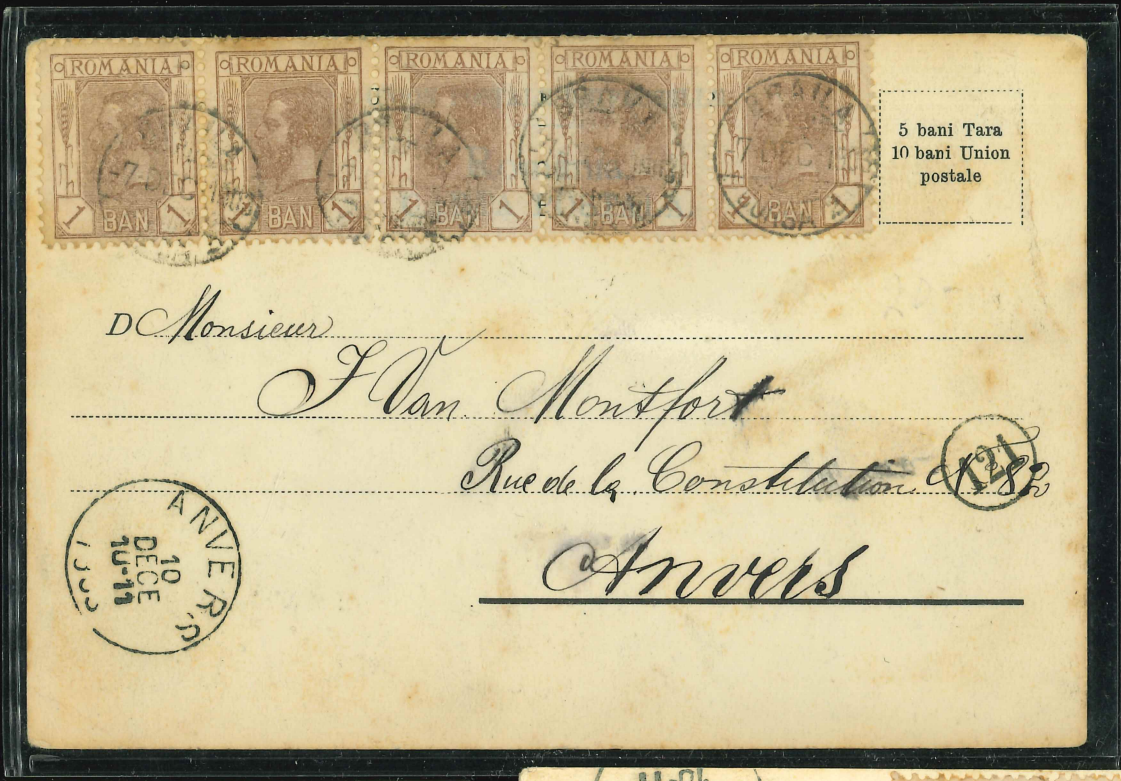 ROMANIA ROMANIA ROMANIA ROMANIA ROMANIA
1 BAN 1 1 BAN 1 1 BAN 1 1 BAN 1 1 BAN 1
5 bani Tara
10 bani Union
postale
7 DEC
D Monsieur
J Van Montfort
Rue de la Constitution N 82
121
Anvers
ANVERS
10
DECE
10-11